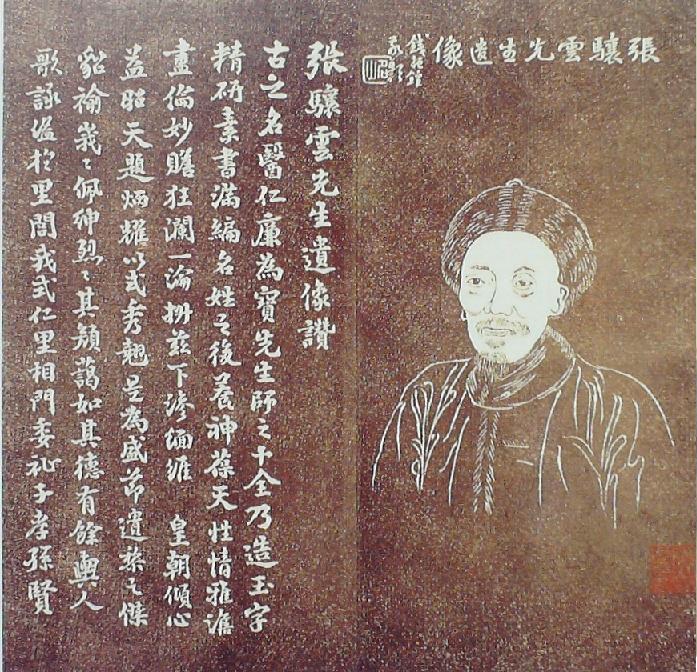 張驤雲先生遺像
張驤雲先生遺像讚
古之名醫仁廉為寶先生師之十全乃造玉字
精研素書滿編名姓之後養神葆天性情雅澹
畫倫妙狂瀾一淪茲下緬維 皇朝傾心
益昭天題炳耀以式秀翹是為盛節遺榮之傑
佩紳烈其藹如其德有餘輿人
歌詠溢於里閭我式仁里相門委祉子孝孫賢